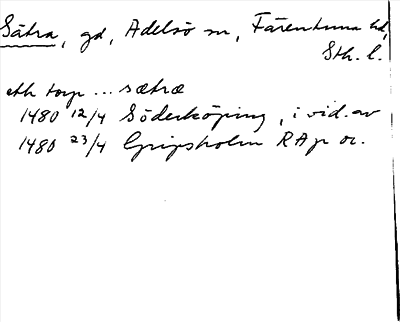 Sätra, gd, Adelsö sn, Färentuna hd,
Sth. l.
eth torp ... sætræ
1480 12/4 Söderköping, i vid. av
1480 23/4 Gripsholm RAp or.